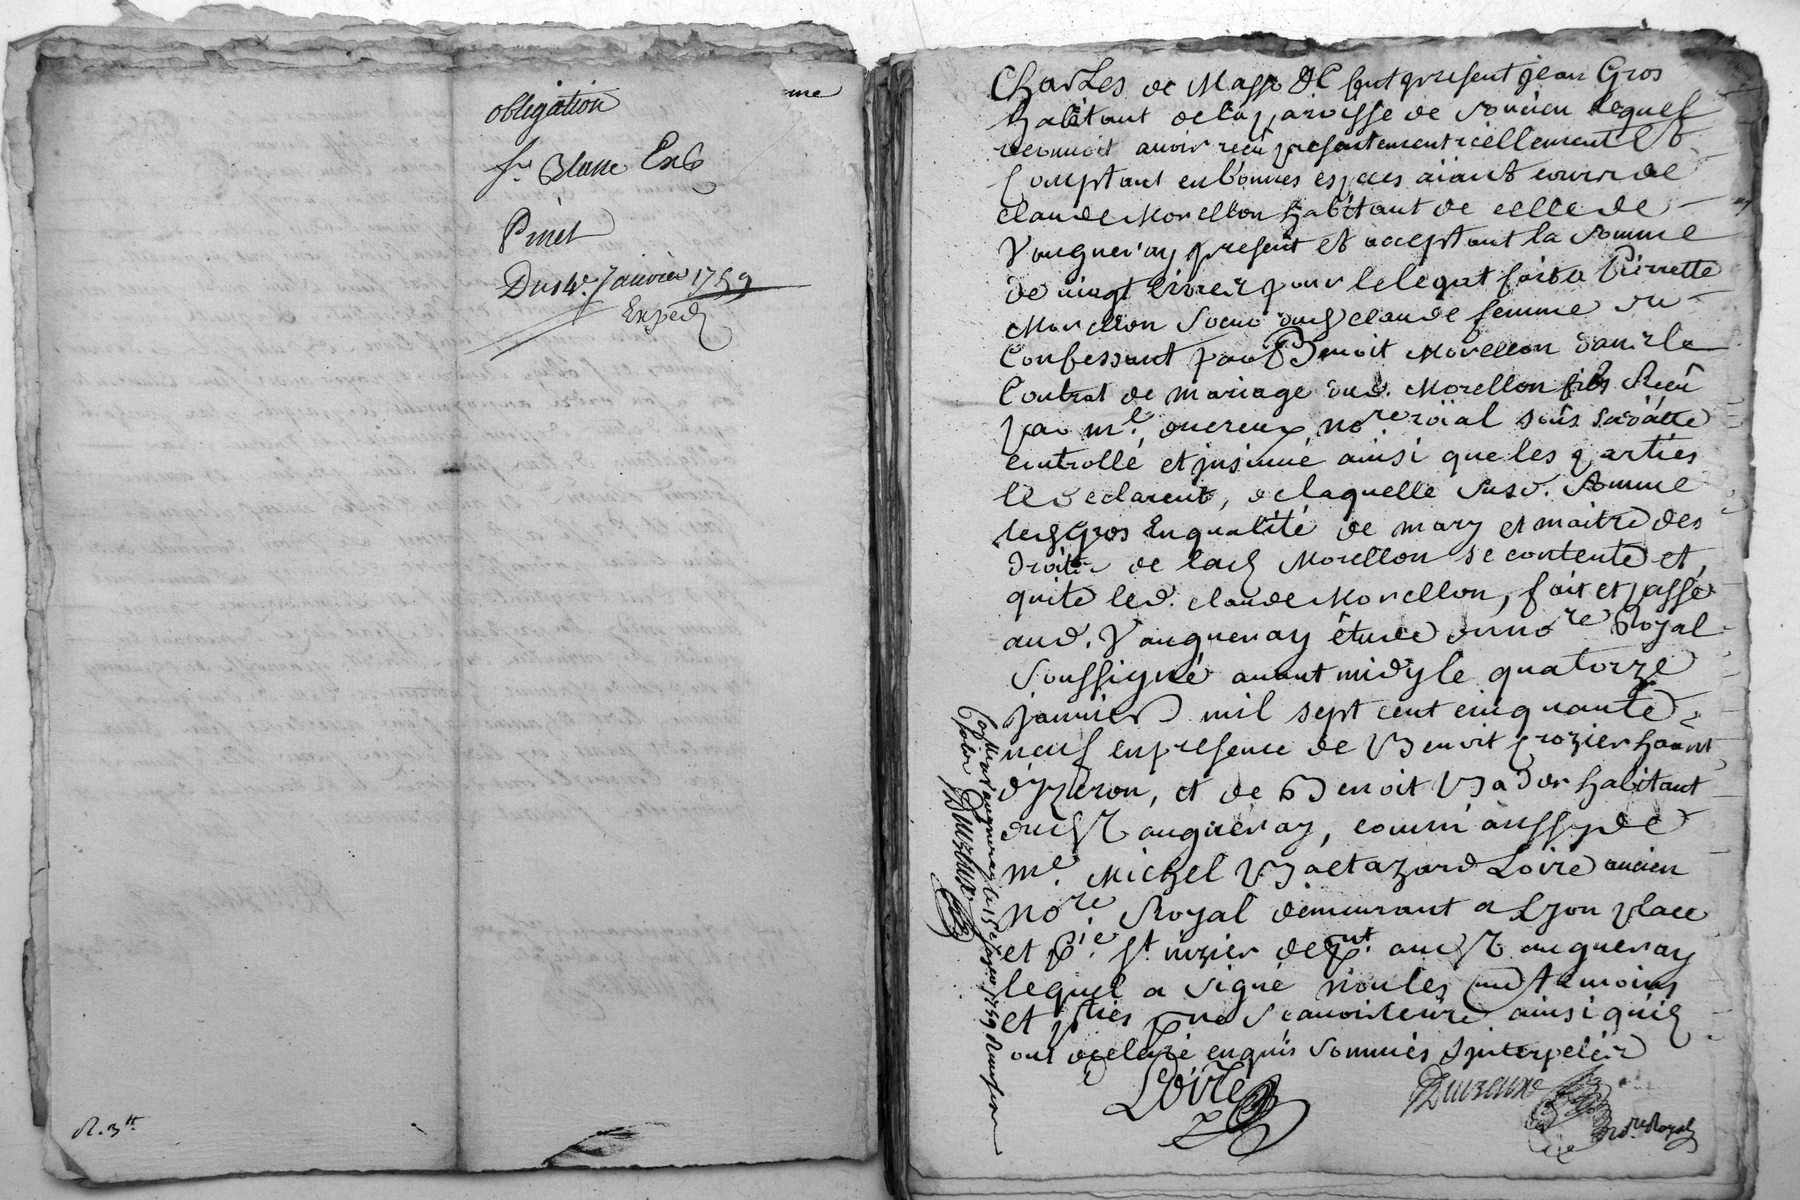 obligation
Sr. Blanc Exp
Pinet
Du 14e. Janvier 1759
Exped
R. 3tt
me
Charles de Masso &c fut present jean Gros
habitant de la paroisse de soucieu lequel
reconnoit avoir reçu presentement réellement et
comptant en bonnes especes aiant cours de
claude Morellon habitant de celle de
Vaugneray present et acceptant la somme
de vingt livres pour le legat fait a Pierrette
Morellon soeur dud claude femme du
Confessant par Benoit Morellon dans le
Contrat de mariage dud. Morellon fils Reçû
par me. ducreux nore. roïal sous sa datte
controllé et jnsinué ainsi que les parties
le declarent, de laquelle susd. somme
led Gros En qualité de mary et maitre des
droits de lad Morellon se contente et
quite led. claude Morellon, fait et passé
aud. Vaugneray étude du nore Royal
soussigné avant midy le quatorze
janvier mil sept cent cinquante
neuf en presence de Benoit crozier haânt
d'yzeron, et de Benoit Bador habitant
dud Vaugneray, comm'aussy de
me. Michel Baltazard Loire ancien
nore Royal demeurant a Lyon place
et pie. st. nizier de pnt. aud Vaugneray
lequel a signé non les autres temoins
et pties pour ne scavoir écrire ainsi qu'ils
ont declaré enquis sommés & jnterpelés
Loire
Ducreux
nore. Royal
Collé. a Vaugneray le 15e janvier 1759 Reçu six sols
Ducreux